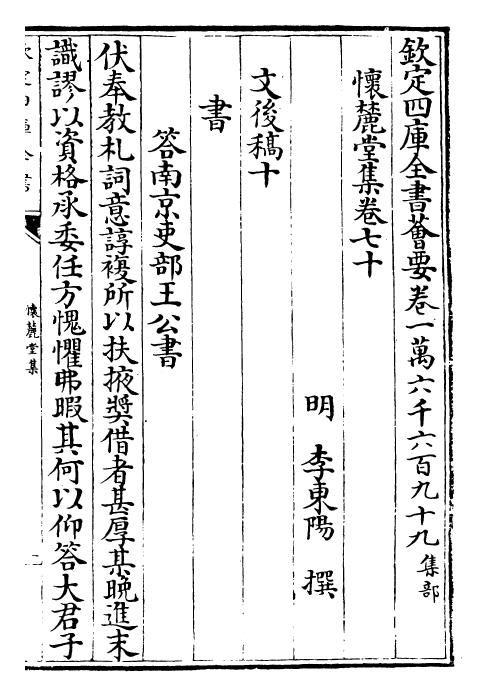 欽定四庫全書薈要卷一萬六千六百九十九集部
懷麓堂集卷七十
明 李東陽 撰
文後稿十
書
答南京吏部王公書
伏奉教札詞意諄複所以扶掖奬借者甚厚某晚進末
識謬以資格承委任方愧懼弗暇其何以仰答大君子
懷麓堂集